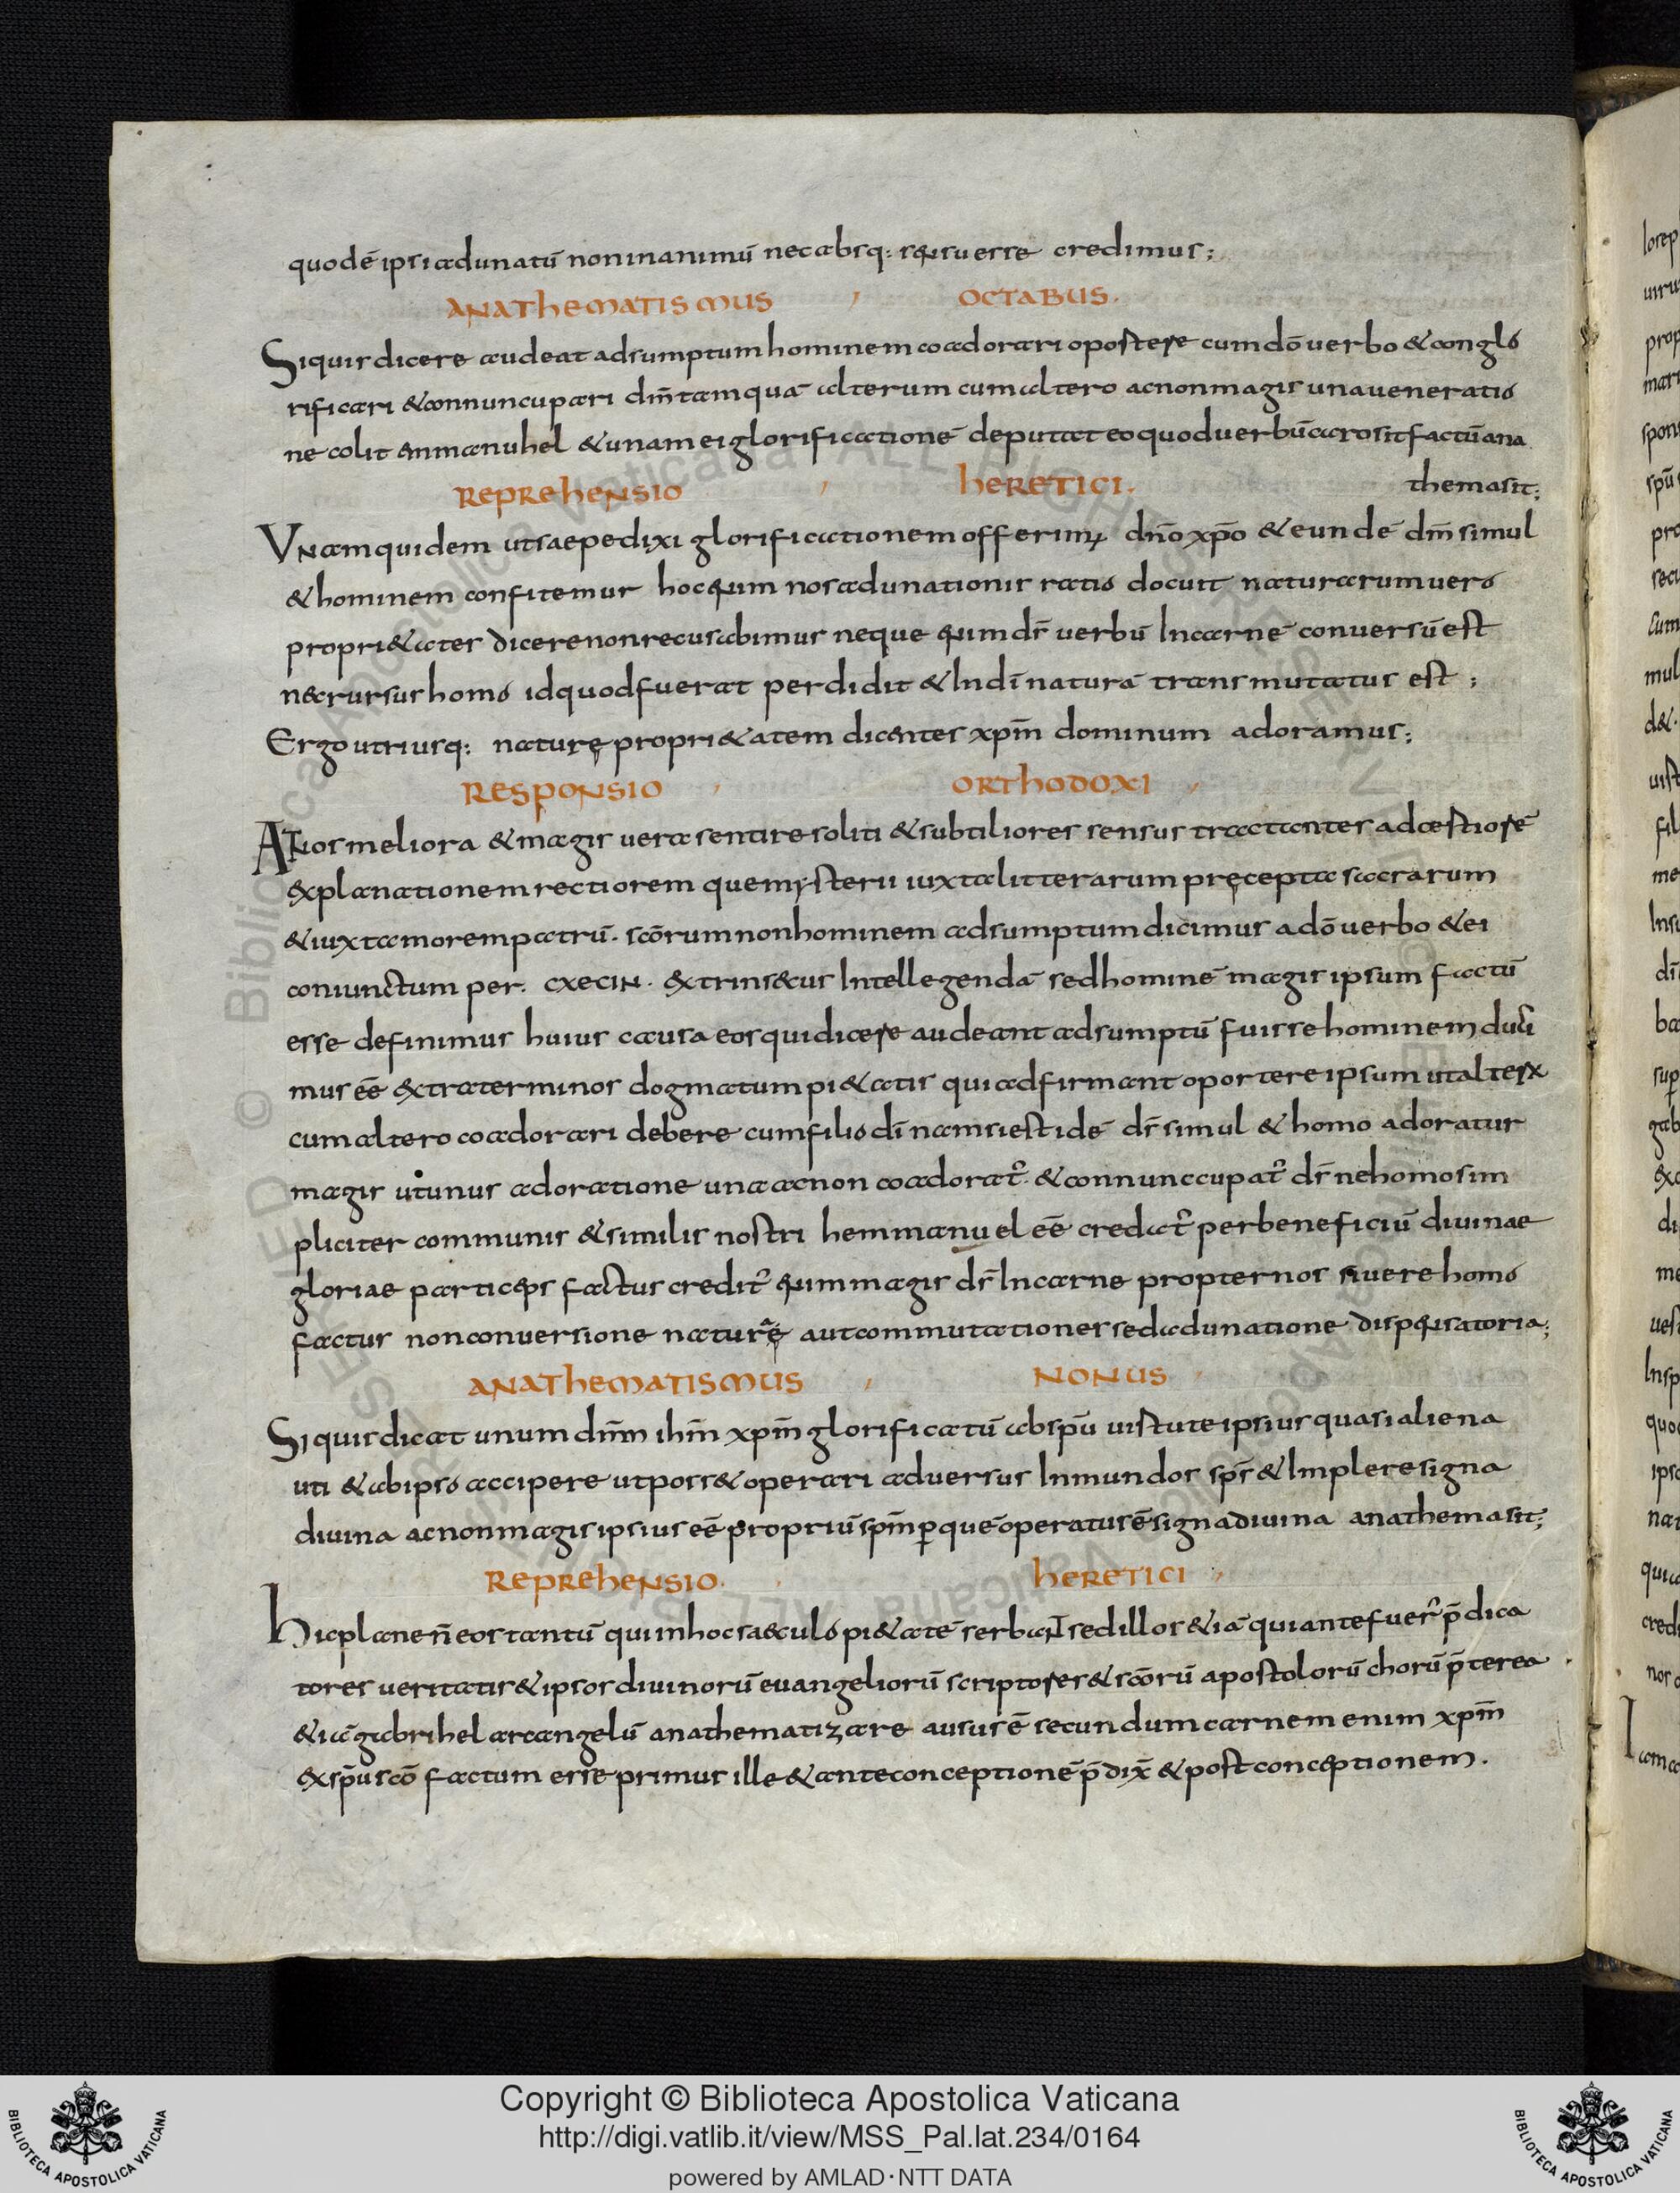 quodē ipsi adunatū non inanimū nec absq: sensu esse credimus;
ANAThEMATISMUS , OCTABUS.
Siquis dicere audeat adsumptum hominem coadorari oportere cum dō uerbo & conglo
rificari & connuncupari dm̄ tamquā alterum cum altero ac non magis una ueneratio
ne colit emmanuhel & unam ei glorificationē deputat eo quod uerbū caro sit factū ana
themasit;
REPREhENSIO , hERETICI.
Vnam quidem ut saepe dixi glorificationem offerimꝰ dn̄o xp̄o & eundē dm̄ simul
& hominem confitemur hoc enim nos adunationis ratio docuit naturarum uero
propri&ates dicere non recusabimus neque enim ds̄ uerbū Incarnē conuersū est
nec rursus homo id quod fuerat perdidit & Indī naturā transmutatus est ;
Ergo utriusq: naturę propri&atem dicentes xpm̄ dominum adoramus;
RESPONSIO , ORThODOXI ,
At nos meliora & magis uera sentire soliti & subtiliores sensus tractantes ad certiorē
explanationem rectiorem que mysterii iuxta litterarum pręcepta sacrarum
& iuxta morem patrū. scōrum non hominem adsumptum dicimus a dō uerbo & ei
coniunctum per. CXECIN. extrinsecus Intellegendā sed hominē magis ipsum factū
esse definimus huius causa eos qui dicere audeant adsumptū fuisse hominem duci
mus eē extra terminos dogmatum pi&atis qui adfirmant oportere ipsum ut alterx
cum altero coadorari debere cum filio dī nam si est idē ds̄ simul & homo adoratur
magis ut unus adoratione una ac non coadorat̉. & connunccupat̉ ds̄ ne homo sim
pliciter communis & similis nostri hemmanuel eē credat̉ per beneficiū diuinae
gloriae particeps factus credit̉ enim magis ds̄ Incarne propter nos si uere homo
factus non conuersione naturę aut commutationes sed adunatione dispensatoria;
ANAThEMATISMUS , NONUS ,
Si quis dicat unum dm̄m ihm̄ xpm̄ glorificatū ab sp̄u uirtute ipsius quasi aliena
uti & ab ipso accipere ut poss& operari aduersus Inmundos sps̄ & Implere signa
diuina ac non magis ipsius eē propriū spm̄ ꝑ quē operatus ē signa diuina anathemasit;
REPREhENSIO. , hERETICI ,
hic plane n̄ eos tantū qui in hoc saeculo pi&atē serbant sed illos &iā qui ante fuer̉ p̄dica
tores ueritatis & ipsos diuinorū euangeliorū scriptores & scōrū apostolorū chorū p̄terea .
&iā gabrihel arcangelū anathematizare ausus ē secundum carnem enim xpm̄
ex sp̄u scō factum esse primus ille & ante conceptionē p̄dix̄ & post conceptionem.
Copyright © Biblioteca Apostolica Vaticana
http://digi.vatlib.it/view/MSS_Pal.lat.234/0164
powered by AMLAD·NTT DATA